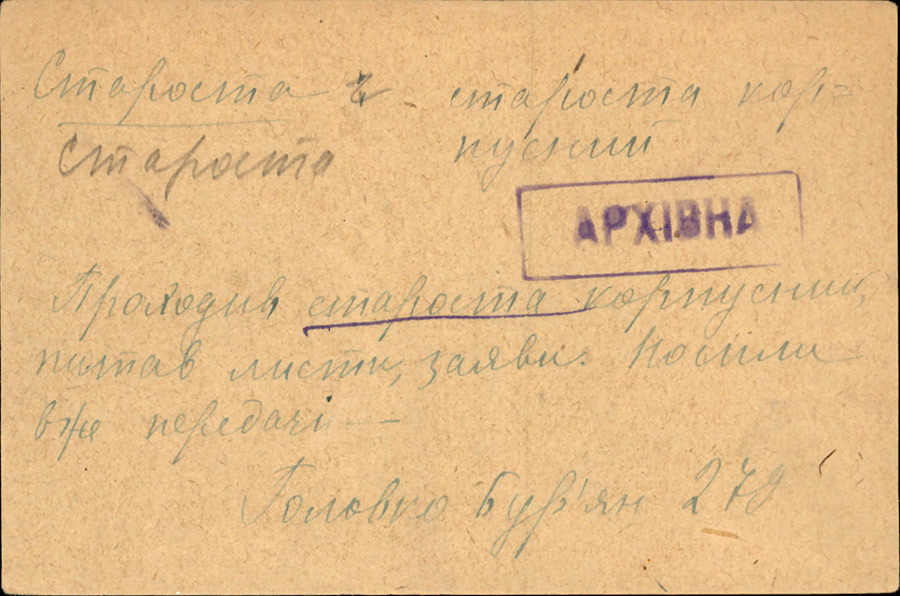 Староста ч. староста кор=
пусний
Староста
АРХІВНА
Проходив староста корпусний,
питав листи, заяви. Носили
вже передачі —
Головко Бур'ян 279